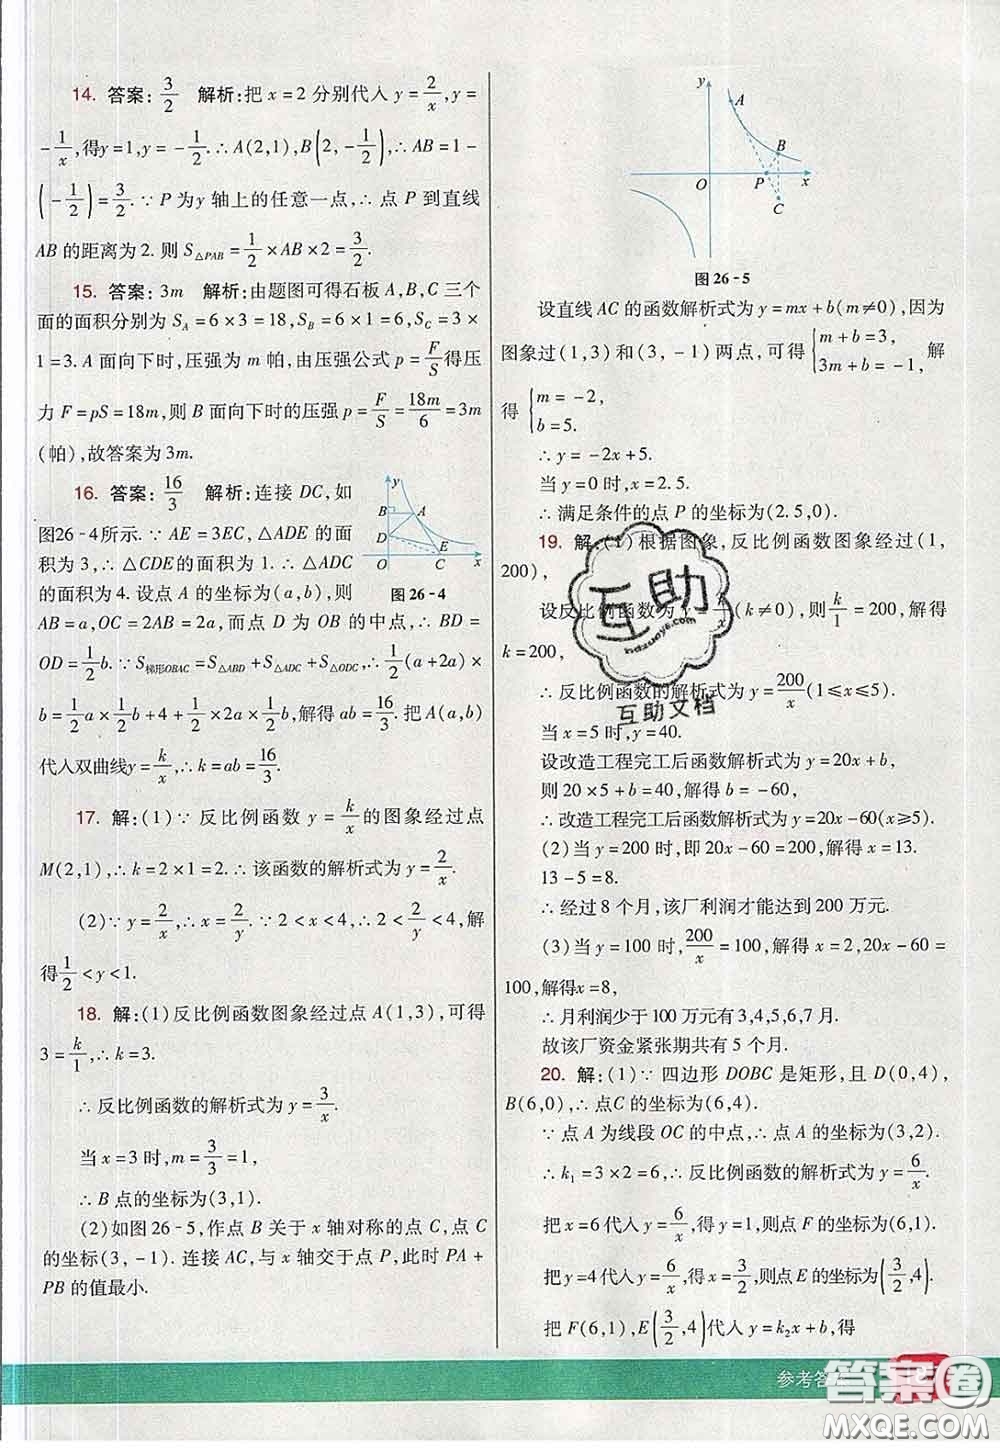 14. 答案：3/2　解析：把 x＝2 分别代入 y＝2/x，y＝
－1/x，得y＝1，y＝－1/2.∴A(2,1)，B(2，－1/2)，∴AB＝1－
(－1/2)＝3/2.∵P 为y 轴上的任意一点，∴点 P 到直线
AB 的距离为 2. 则 S△PAB＝1/2×AB×2＝3/2.
15. 答案：3m　解析：由题图可得石板 A，B，C 三个
面的面积分别为 SA＝6×3＝18，SB＝6×1＝6，SC＝3×
1＝3. A 面向下时，压强为 m 帕，由压强公式 p＝F/S得压
力 F＝pS＝18m，则 B 面向下时的压强 p＝F/S＝18m/6＝3m
(帕)，故答案为 3m.
16. 答案：16/3　解析：连接 DC，如
图26－4所示.∵AE＝3EC，△ADE 的面
积为 3，∴△CDE的面积为 1.∴△ADC
的面积为 4. 设点 A 的坐标为(a，b)，则
y
B
A
D
E
O
C
x
图 26－4
AB＝a，OC＝2AB＝2a，而点 D 为 OB 的中点，∴BD＝
OD＝1/2b.∵S梯形OBAC＝S△ABD＋S△ADC＋S△ODC，∴1/2(a＋2a)×
b＝1/2a×1/2b＋4＋1/2×2a×1/2b，解得 ab＝16/3. 把 A(a，b)
代入双曲线y＝k/x，∴k＝ab＝16/3.
17. 解：(1)∵反比例函数 y＝k/x 的图象经过点
M(2,1)，∴k＝2×1＝2.∴该函数的解析式为 y＝2/x.
(2)∵y＝2/x，∴x＝2/y.∵2＜x＜4，∴2＜2/y＜4，解
得1/2＜y＜1.
18. 解：(1)反比例函数图象经过点 A(1,3)，可得
3＝k/1，∴k＝3.
∴反比例函数的解析式为 y＝3/x.
当 x＝3 时，m＝3/3＝1，
∴B 点的坐标为(3,1).
(2)如图 26－5，作点 B 关于 x 轴对称的点 C，点 C
的坐标(3，－1). 连接 AC，与 x 轴交于点 P，此时 PA＋
PB 的值最小.
y
A
B
O
P
x
C
图 26－5
设直线 AC 的函数解析式为 y＝mx＋b(m≠0)，因为
图象过(1,3)和(3，－1)两点，可得{m＋b＝3，3m＋b＝－1，解
得{m＝－2，b＝5.
∴y＝－2x＋5.
当 y＝0 时，x＝2.5.
∴满足条件的点 P 的坐标为(2.5,0).
19. 解：(1)根据图象，反比例函数图象经过(1，
200)，
设反比例函数为 y＝k/x(k≠0)，则k/1＝200，解得
k＝200，
∴反比例函数的解析式为 y＝200/x(1≤x≤5).
当 x＝5 时，y＝40.
设改造工程完工后函数解析式为 y＝20x＋b，
则 20×5＋b＝40，解得 b＝－60，
∴改造工程完工后函数解析式为 y＝20x－60(x≥5).
(2)当 y＝200 时，即 20x－60＝200，解得 x＝13.
13－5＝8.
∴经过 8 个月，该厂利润才能达到 200 万元.
(3)当 y＝100 时，200/x＝100，解得 x＝2，20x－60＝
100，解得x＝8，
∴月利润少于 100 万元有 3,4,5,6,7 月.
故该厂资金紧张期共有 5 个月.
20. 解：(1)∵四边形 DOBC 是矩形，且 D(0,4)，
B(6,0)，∴点C 的坐标为(6,4).
∵点 A 为线段 OC 的中点，∴点 A 的坐标为(3,2).
∴k1＝3×2＝6，∴反比例函数的解析式为 y＝6/x.
把 x＝6 代入 y＝6/x，得 y＝1，则点 F 的坐标为(6,1).
把 y＝4 代入 y＝6/x，得 x＝3/2，则点 E 的坐标为(3/2，4).
把 F(6,1)，E(3/2，4)代入 y＝k2x＋b，得
互助
indazuoye.com
互助文档
参考答
答案圈
MXQE.COM